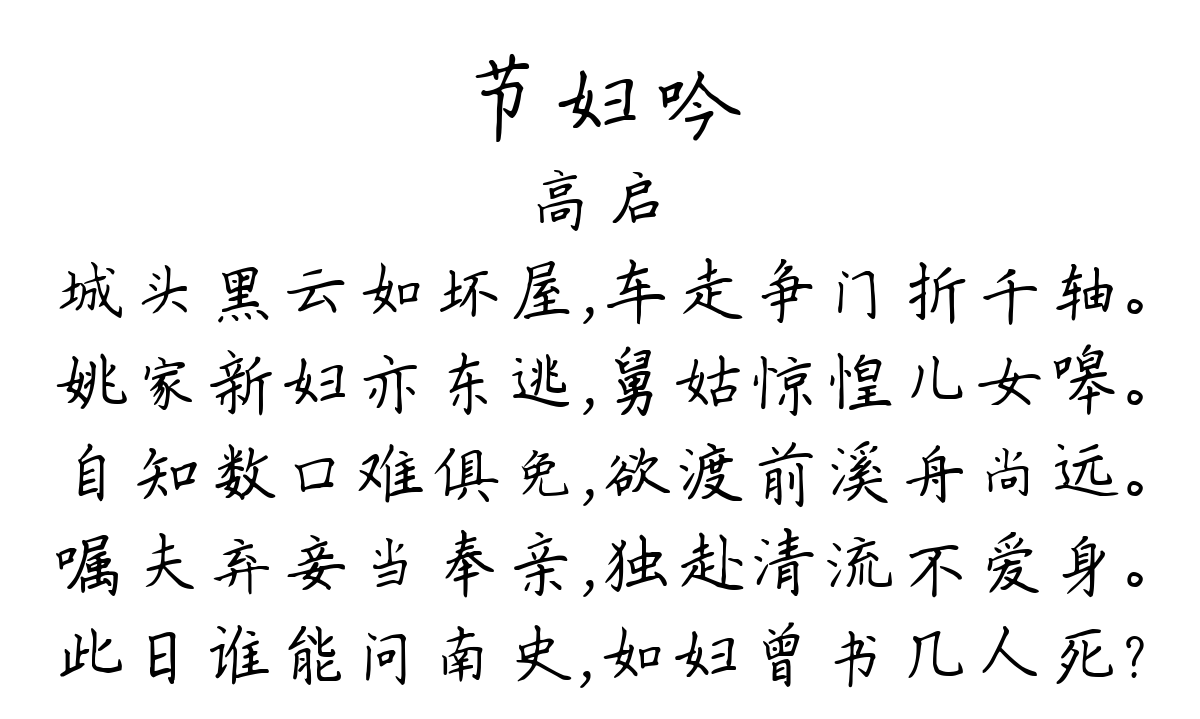 节妇吟
高启
城头黑云如坏屋,车走争门折千轴。
姚家新妇亦东逃,舅姑惊惶儿女嗥。
自知数口难俱免,欲渡前溪舟尚远。
嘱夫弃妾当奉亲,独赴清流不爱身。
此日谁能问南史,如妇曾书几人死?